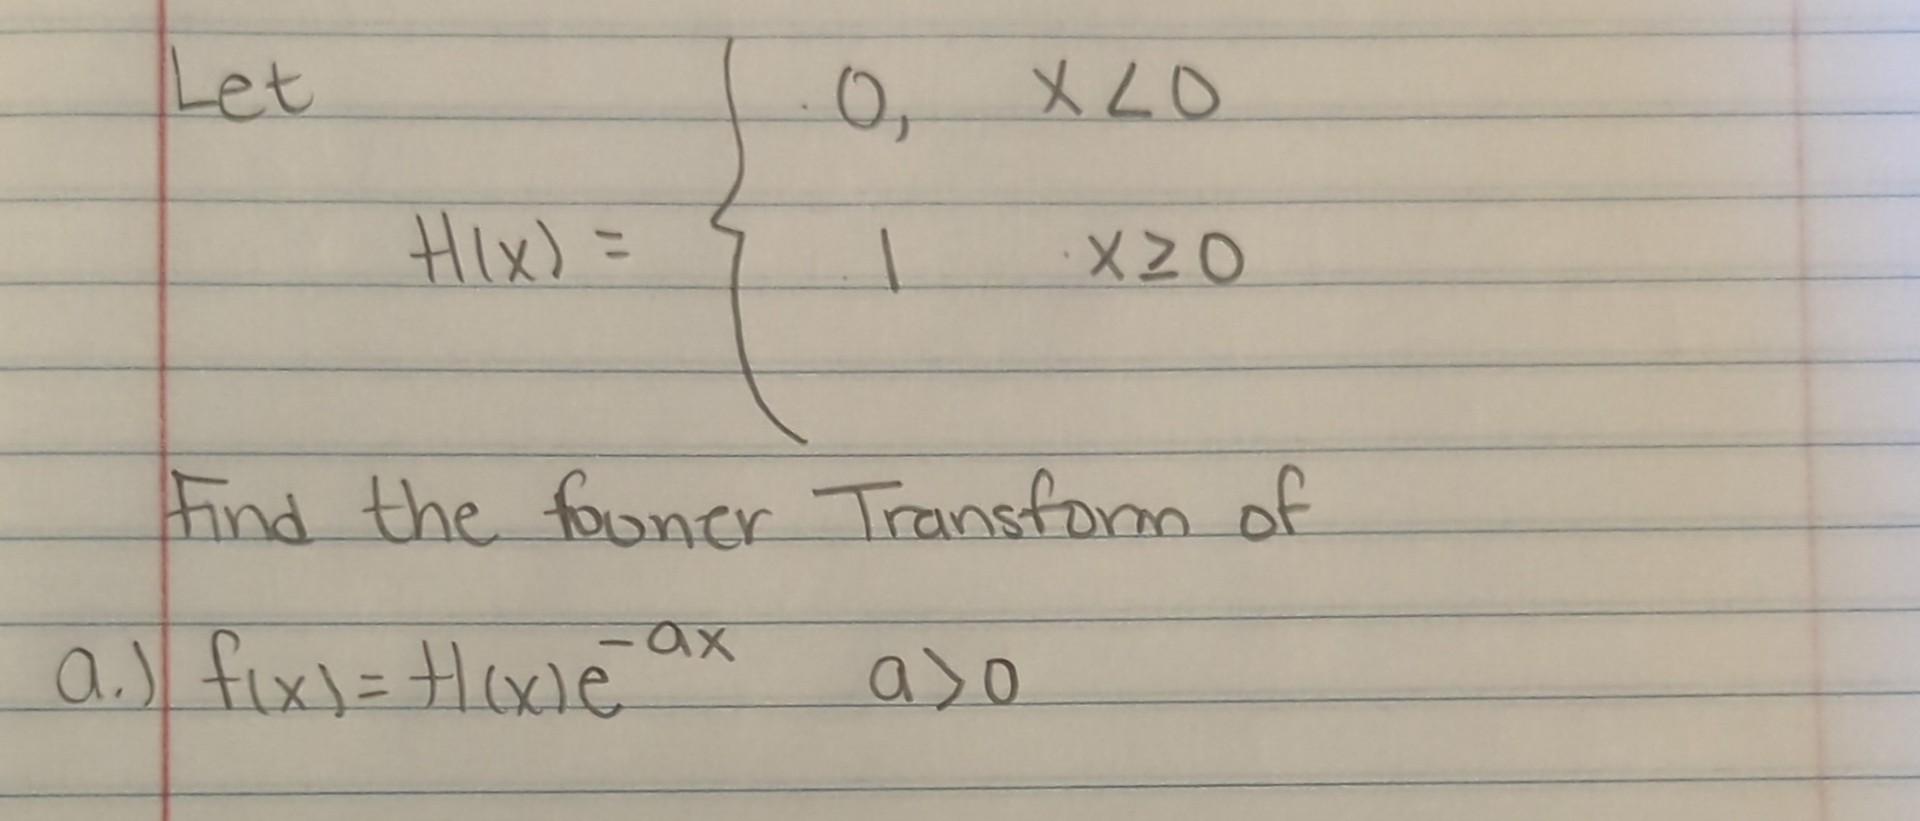 Let
H(x) = { 0, x<0
1 x≥0
Find the fourier Transform of
a.) f(x) = H(x)e^{-ax} a>0